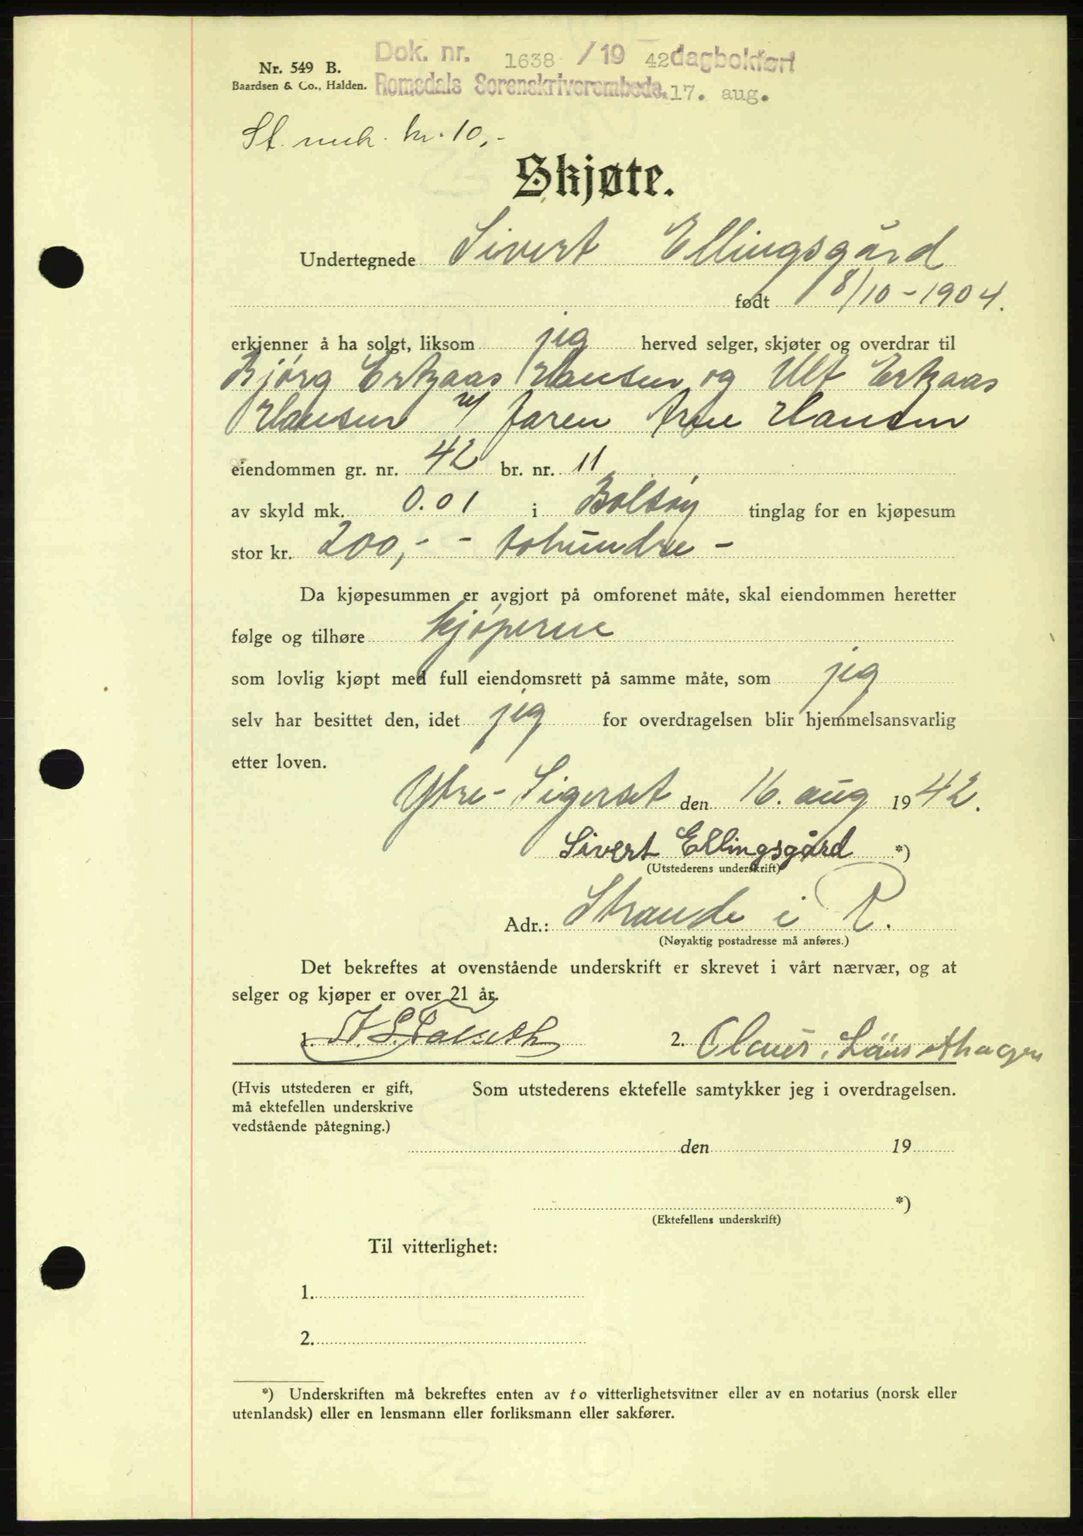 Nr. 549 B.
Baardsen & Co., Halden.
Dok. nr. 1638 /19 42 dagbokført
Romsdals Sorenskriverembede. 17. aug.
St. merk. kr. 10,-
Skjøte.
Undertegnede Sivert Ellingsgård
født 8/10-1904.
erkjenner å ha solgt, liksom jeg herved selger, skjøter og overdrar til
Bjørg Erkaas Hansen og Ulf Erkaas
Hansen v/ faren Arne Hansen
eiendommen gr. nr. 42 br. nr. 11
av skyld mk. 0.01 i Bolsøy tinglag for en kjøpesum
stor kr. 200,- - tohundre -
Da kjøpesummen er avgjort på omforenet måte, skal eiendommen heretter
følge og tilhøre kjøperne
som lovlig kjøpt med full eiendomsrett på samme måte, som jeg
selv har besittet den, idet jeg for overdragelsen blir hjemmelsansvarlig
etter loven.
Ytre- den 16. aug 1942.
Sivert Ellingsgård *)
(Utstederens underskrift)
Adr.: Strande i R.
(Nøyaktig postadresse må anføres.)
Det bekreftes at ovenstående underskrift er skrevet i vårt nærvær, og at
selger og kjøper er over 21 år.
1. 2.
(Hvis utstederen er gift, Som utstederens ektefelle samtykker jeg i overdragelsen.
må ektefellen underskrive
vedstående påtegning.)
den 19
*)
(Ektefellens underskrift)
Til vitterlighet:
1.
2.
*) Underskriften må bekreftes enten av to vitterlighetsvitner eller av en notarius (norsk eller
utenlandsk) eller en lensmann eller forliksmann eller sakfører.